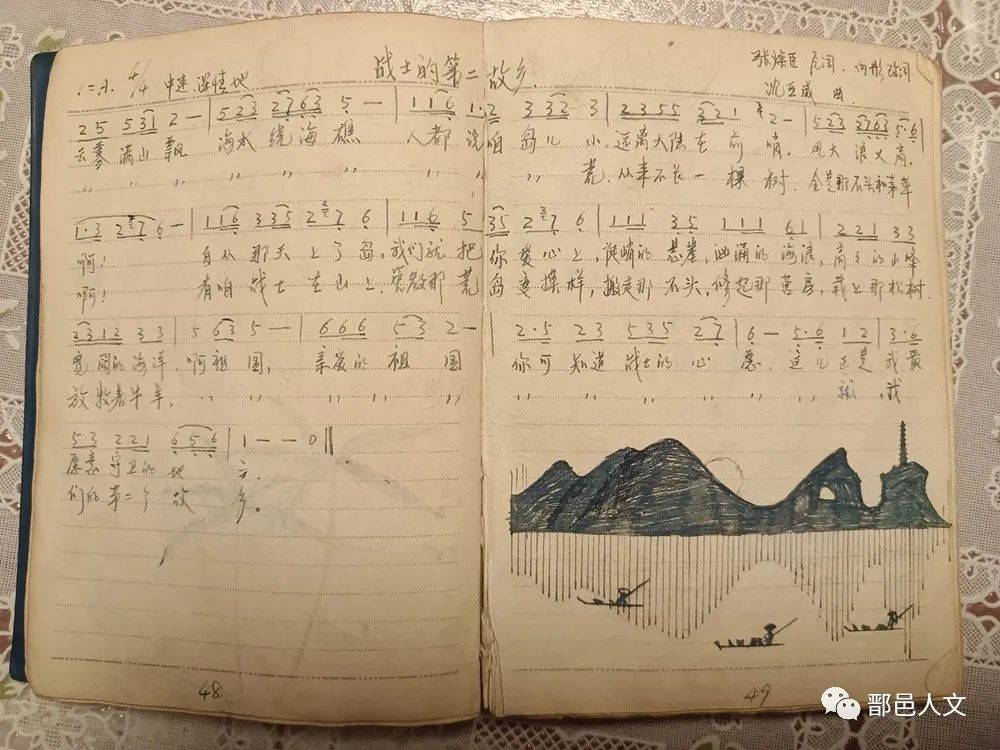 战士的第二故乡
1=A 4/4 中速 深情地
张焕臣 原词. 何彤 改词
沈亚威 曲
2 5 5 3 1 2 — | 5 2 3 2 7 6 3 5 — | 1 1 6 1·2 3 3 3 2 3 | 2 3 5 5 3 2 1 2 — | 5 2 3 3 7 6 3 5·6
云雾满山飘 海水绕海礁 人都说咱岛儿小,远离大陆在前哨.风大浪又高,
〃 〃 〃 〃 荒.从来不长一棵树.全是那石头和茅草
1·3 2 7 6 — | 1 1 6 3 3 5 2 7 6 | 1 1 6 5 3 5 2 7 6 | 1 1 1 3 5 1 1 1 6 1 | 2 2 1 3 3
啊! 自从那天上了岛,我们就把你爱心上,陡峭的悬崖,汹涌的海浪,高高的山峰
啊! 有咱战士在山上,管教那荒岛变模样,搬走那石头,修起那营房,栽上那松树.
2 3 1 2 3 3 | 5 6 3 5 — | 6 6 6 5 3 2 — | 2·5 2 3 5 3 5 2 7 | 6 — 5·6 1 2 | 3·6
宽阔的海洋,啊祖国,亲爱的祖国 你可知道战士的心愿,这儿正是我最
放牧着牛羊,〃 〃 〃 〃 〃 〃 〃 〃 〃 就,我
5 3 2 2 1 6 5 6 | 1 — — 0 ‖
愿意守卫的地方.
们的第二个故乡。
48
49
鄯邑人文